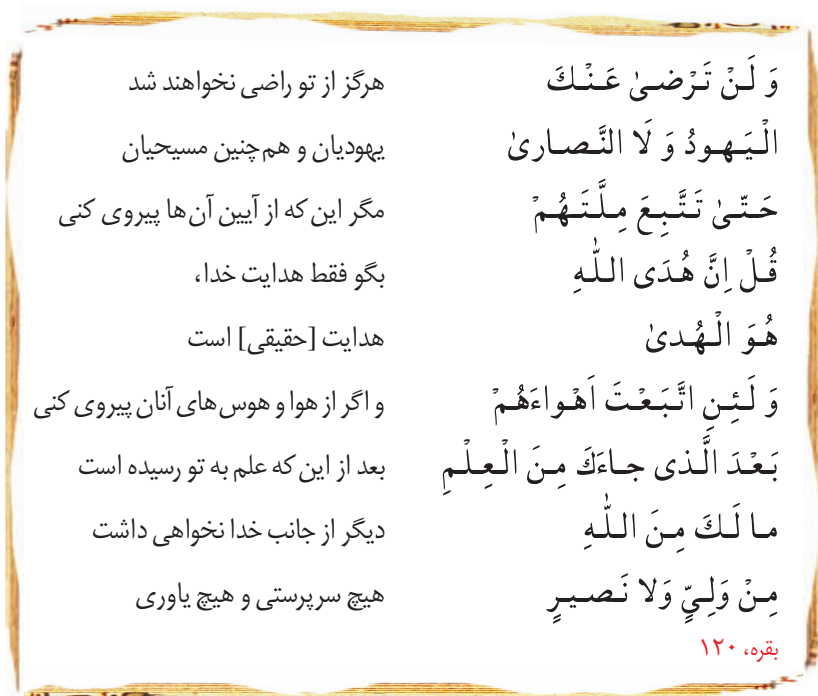 وَ لَنْ تَرْضىٰ عَنْكَ هرگز از تو راضی نخواهند شد
الْيَهودُ وَ لَا النَّصارىٰ یهودیان و هم‌چنین مسیحیان
حَتّىٰ تَتَّبِعَ مِلَّتَهُمْ مگر این که از آیین آن‌ها پیروی کنی
قُلْ اِنَّ هُدَى اللّٰهِ بگو فقط هدایت خدا،
هُوَ الْهُدىٰ هدایت [حقیقی] است
وَ لَئِنِ اتَّبَعْتَ اَهْواءَهُمْ و اگر از هوا و هوس‌های آنان پیروی کنی
بَعْدَ الَّذى جاءَكَ مِنَ الْعِلْمِ بعد از این که علم به تو رسیده است
ما لَكَ مِنَ اللّٰهِ دیگر از جانب خدا نخواهی داشت
مِنْ وَلِيٍّ وَلا نَصيرٍ هیچ سرپرستی و هیچ یاوری
بقره، ۱۲۰